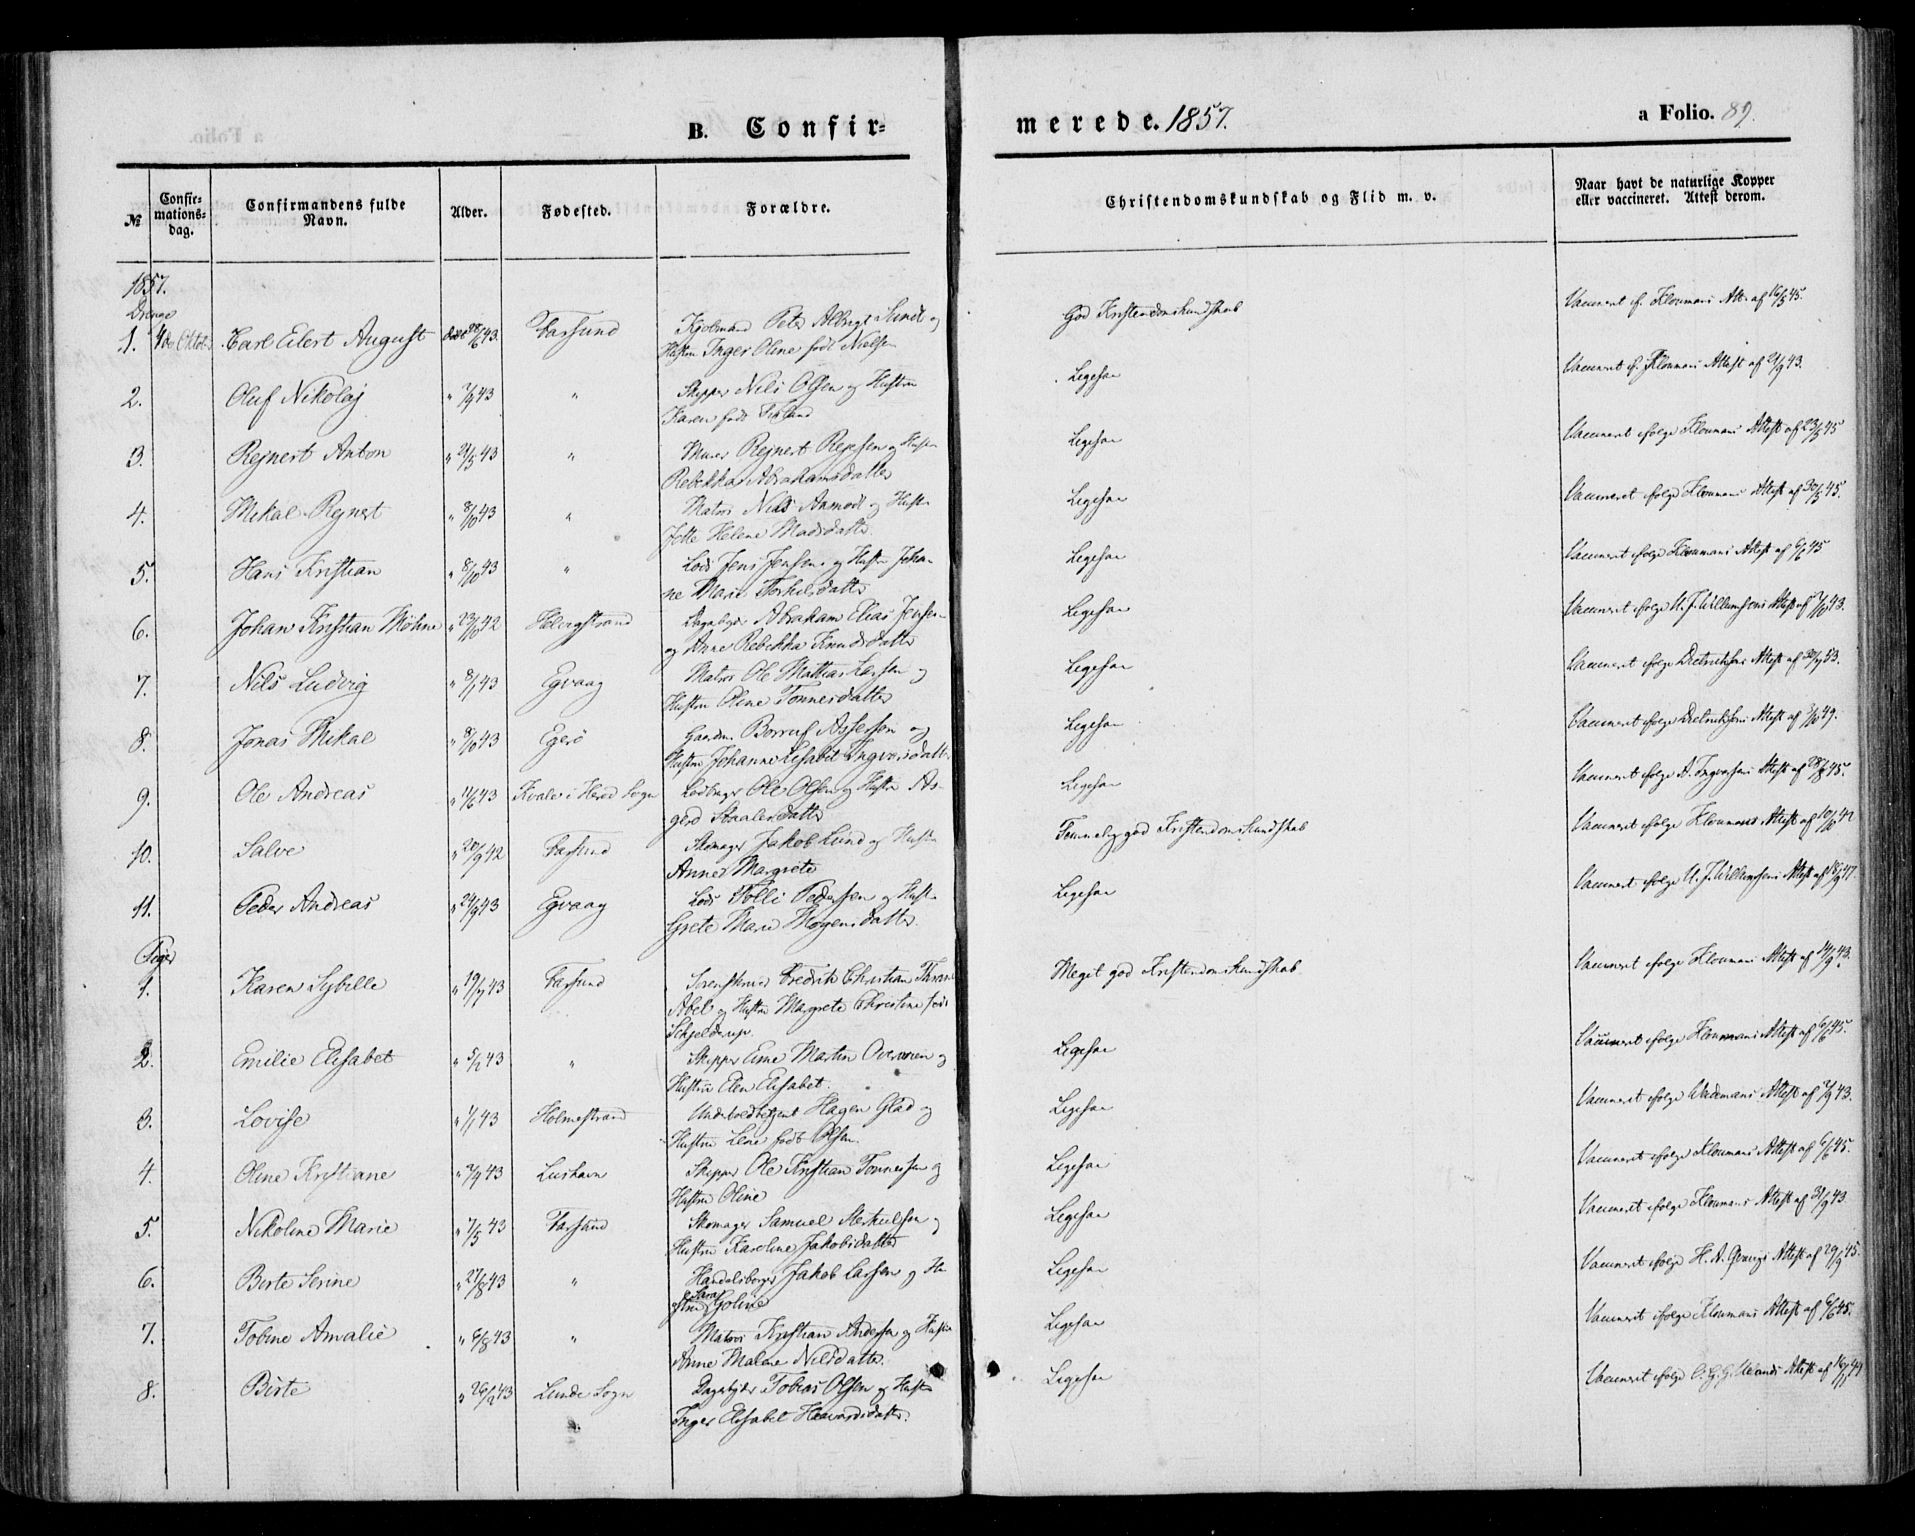 B. Confir-
merede. 1857.
a Folio. 89.
№
Confir-
mations-
dag.
Confirmandens fulde
Navn.
Alder.
Fødested.
Forældre.
Christendomskundskab og Flid m. v.
Naar havt de naturlige Kopper
eller vaccineret. Attest derom.
1857.
Drenge
1. Carl Eilert August 43. Farsund Peter Albrigt Sundt og
Hustru Inger Oline født Nielsen
God Kristendomskundskab
Vaccineret if. Kloumans Att. af 16/5 45.
2. Oluf Nikolaj " 7/9 43 " Skipper Nils Olsen og Hustru
Karen født
Ligesaa
Vaccineret if. Kloumans Attest af 21/9 43.
3. Rejnert Anton " 21/5 43 " Murer Rejnert Rejersen og Hustru
Rebekka Abrahamsdatter
Ligesaa
Vaccineret ifølge Kloumans Attest af 23/5 45
4. Mikal Rejnert " 8/10 43 " Matros Nils Aamodt og Hustru
Jette Helene Madsdatter.
Ligesaa
Vaccineret ifølge Kloumans Attest af 30/5 45.
5. Hans Kristian " 8/10 43 " Lods Jens Jensen og Hustru Johan-
ne Marie Torkelsdatter
Ligesaa
Vaccineret ifølge Kloumans Attest af 6/6 45
6. Johan Kristian Møhne " 23/10 42 Helvigstrand Dagarbejder Abraham Elias Jensen
og Anne Rebekka Knudsdatter
Ligesaa
Vaccineret ifølge U. J. Willumsens Attest af 43.
7. Nils Ludvig " 8/1 43 Egvaag Matros Ole Mathias Larsen og
Hustru Oline Tønnesdatter
Ligesaa
Vaccineret ifølge Dietrichsons Attest af 53.
8. Jonas Mikal " 8/10 43 Egerø Gaardm. Borruf Assersen og
Hustru Johanne Elisabet Ingversdatter.
Ligesaa
Vaccineret ifølge Dietrichsons Attest af 49.
9. Ole Andreas " 11/6 43 Kvale i Hered Sogn Ole Olsen og Hustru As-
gerd Staalesdatter
Ligesaa
Vaccineret ifølge A. Ingvarsens Attest af 28/8 45.
10. Salve " 20/9 42 Farsund Skomager Jakob Lund og Hustru
Anne Margrete
Temmelig god Kristendomskundskab
Vaccineret ifølge Kloumans Attest af
11. Peder Andreas " 24/9 43 Egvaag Lods Tolli Pedersen og Hustru
Grete Marie Mogensdatter.
Ligesaa
Vaccineret ifølge U. J. Willumsens Attest af 47.
Piger
1. Karen Sybille " 19/7 43 Farsund Sorenskriver Fredrik Christian Thrane
Abel og Hustru Margrete Christine født
Schjelderup.
Meget god Kristendomskundskab
Vaccineret ifølge Kloumans Attest af 14/9 43.
2. Emilie Elisabet " 5/2 43 " Skipper Martin og
Hustru Elen Elisabet.
Ligesaa
Vaccineret ifølge Kloumans Attest af 6/6 45.
3. Lovise " 1/1 43 Holmestrand Underfoldbetjent Hagen Glad og
Hustru Lene født Olsen.
Ligesaa
Vaccineret ifølge Wademans Attest af 43.
4. Oline Kristiane " 7/9 43 Lushavn Skipper Ole Kristian Tønnessen og
Hustru Oline
Ligesaa
Vaccineret ifølge Kloumans Attest af 6/6 45.
5. Nikoline Marie " 7/5 43 Farsund Skomager Samuel og
Hustru Karoline Jakobsdatter
Ligesaa
Vaccineret ifølge Kloumans Attest af 43
6. Birte Serine " 27/8 43 " Handelsborger Jakob Larsen og Hu-
stru Sara Goline
Ligesaa
Vaccineret ifølge H. A. Attest af 29/9 45.
7. Tobine Amalie " 6/8 43 " Matros Kristian Andersen og Hustru
Anne Malene Nilsdatter.
Ligesaa
Vaccineret ifølge Kloumans Attest af 6/6 45.
8. Birte " 26/2 43 Lunde Sogn Dagarbejder Tobias Olsen og Hustru
Inger Elisabet Haavardsdatter.
Ligesaa
Vaccineret ifølge C. G. G. Ulands Attest af